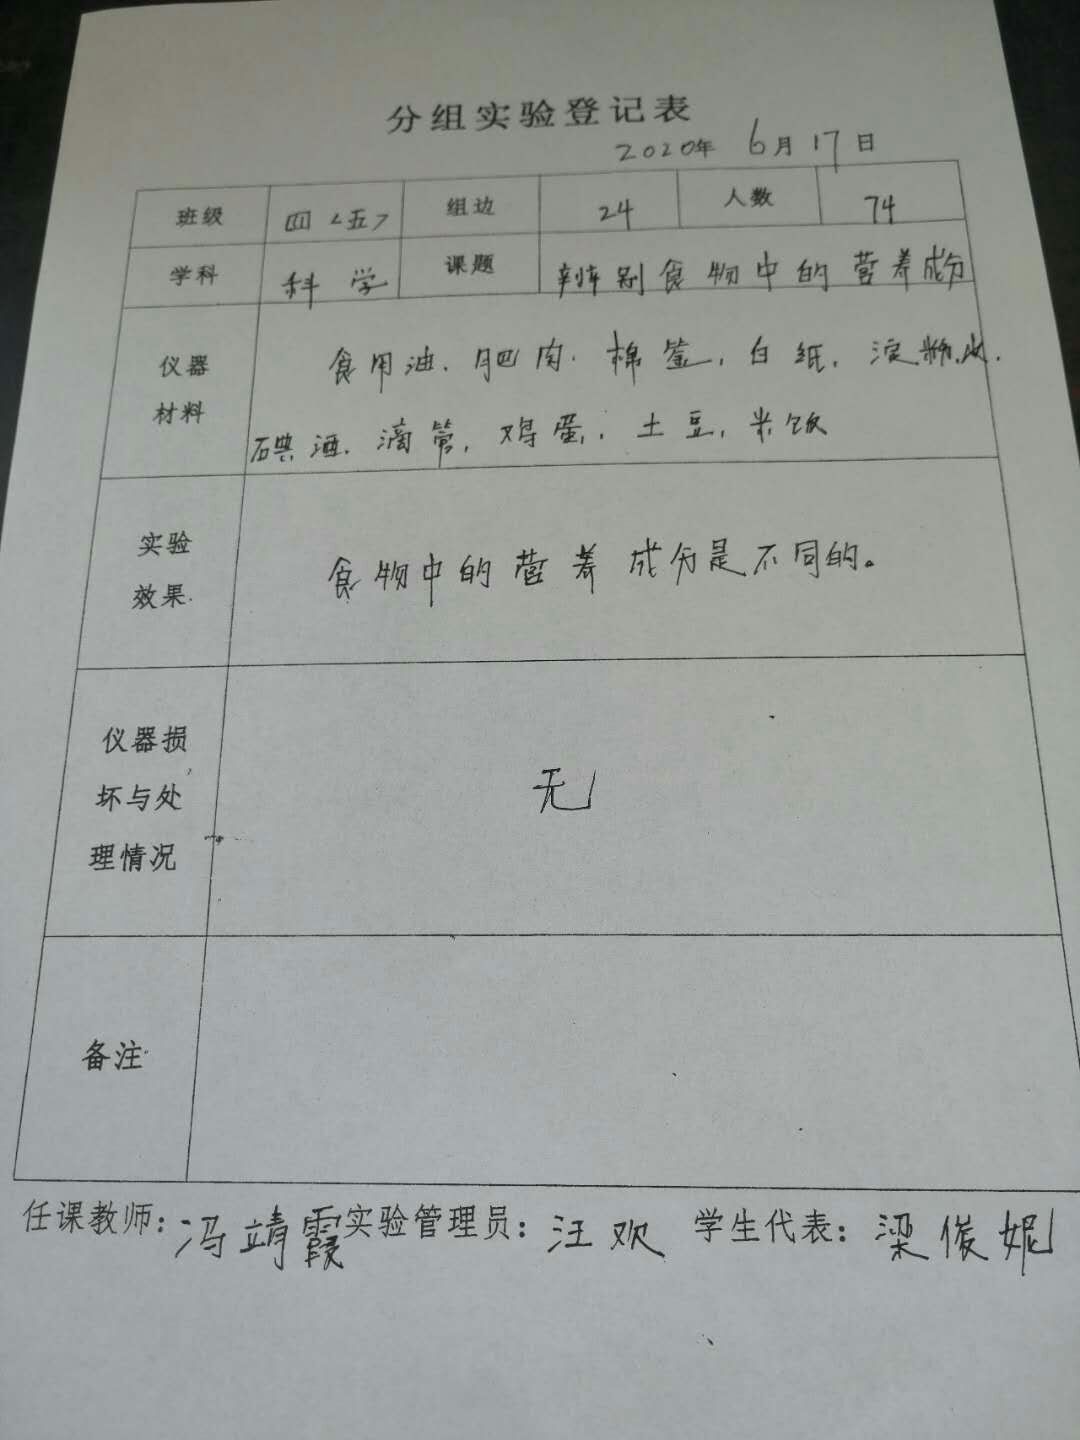 分组实验登记表
2020年 6月17日
班级 四<五> 组边 24 人数 74
学科 科学 课题 辨别食物中的营养成分
仪器材料 食用油、肥肉、棉签，白纸，淀粉、
碘酒、滴管，鸡蛋，土豆，米饭
实验
效果
食物中的营养成分是不同的。
仪器损
坏与处
理情况
无
备注
任课教师：冯靖霞 实验管理员：汪欢 学生代表：梁俊妮